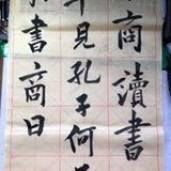 商讀書
畢見孔子何
書商曰